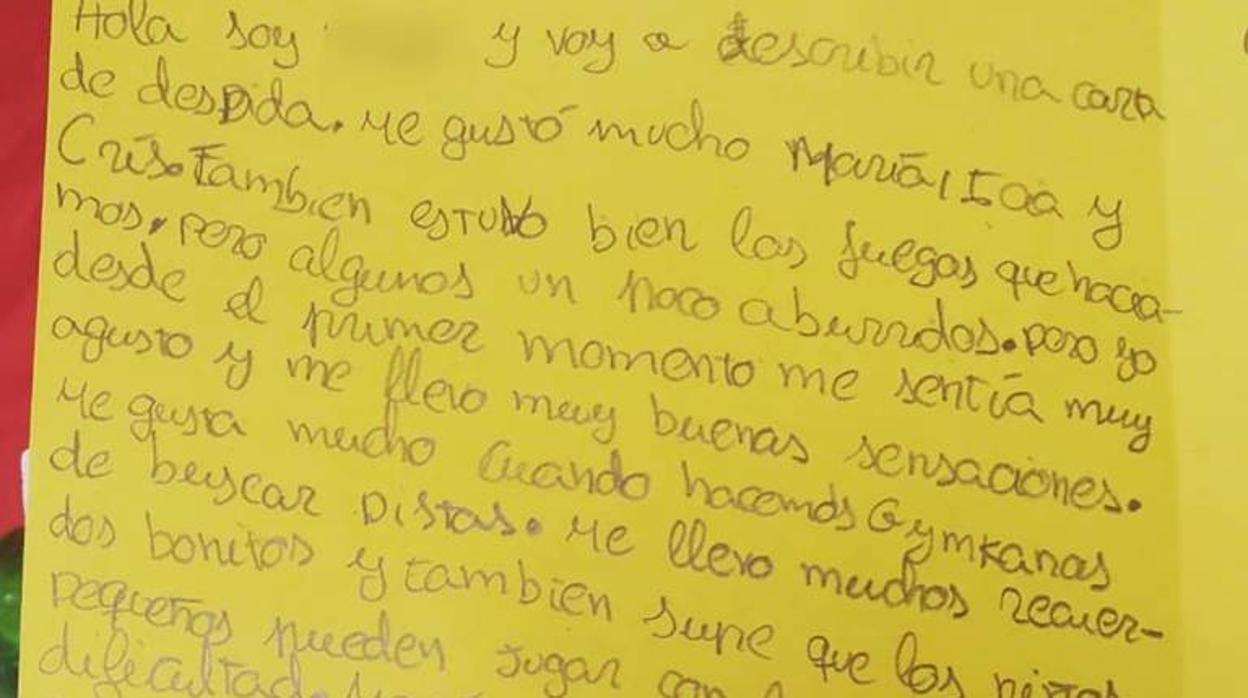 Hola soy y voy a describir una carta
de despida. Me gustó mucho María, Ioa y
Cris. También estubo bien los juegos que hacía-
mos. pero algunos un poco aburridos. pero yo
desde el primer momento me sentía muy
agusto y me llevo muy buenas sensaciones.
Me gusta mucho cuando hacemos Gymkanas
de buscar pistas. Me llevo muchos recuer-
dos bonitos y tambien supe que los niños
pequeños pueden jugar con
dificultad.